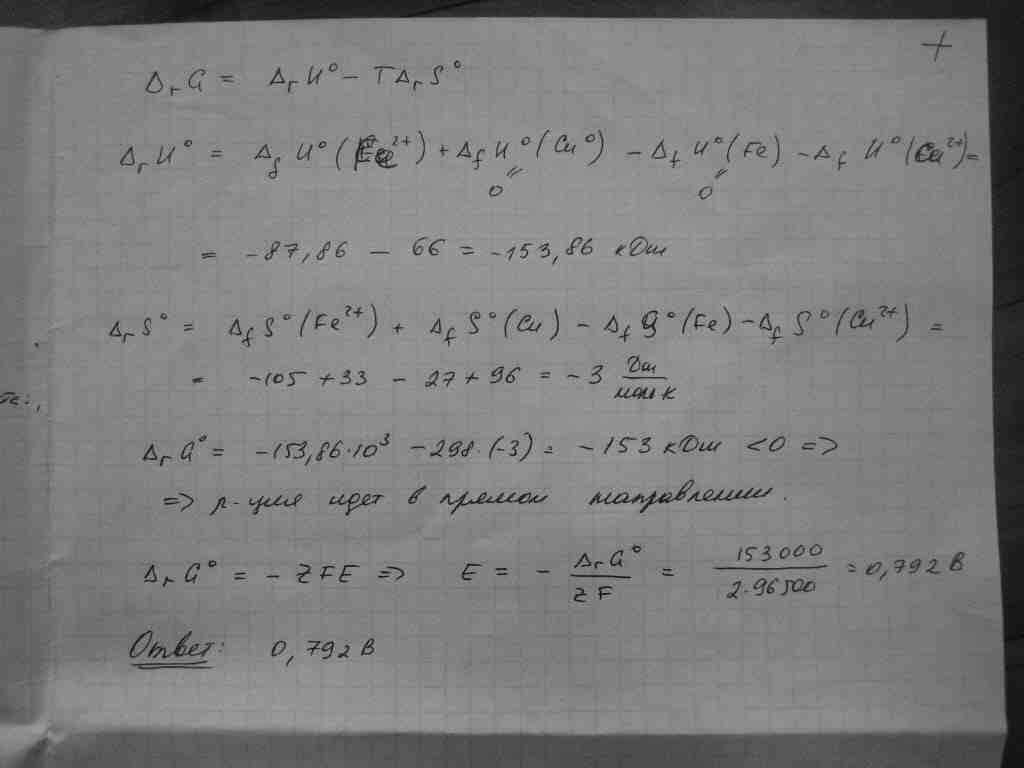 +
ΔrG = ΔrH° − TΔrS°
ΔrH° = ΔfH°(Fe²⁺) + ΔfH°(Cu°) − ΔfH°(Fe) − ΔfH°(Cu²⁺) =
0 0
= −87,86 − 66 = −153,86 кДж
ΔrS° = ΔfS°(Fe²⁺) + ΔfS°(Cu) − ΔfS°(Fe) − ΔfS°(Cu²⁺) =
= −105 + 33 − 27 + 96 = −3 Дж/моль К
ΔrG° = −153,86·10³ − 298·(−3) = −153 кДж < 0 =>
=> р-ция идет в прямом направлении.
ΔrG° = − ZFE => E = − ΔrG°/ZF = 153000/2·96500 = 0,792 В
Ответ: 0,792 В